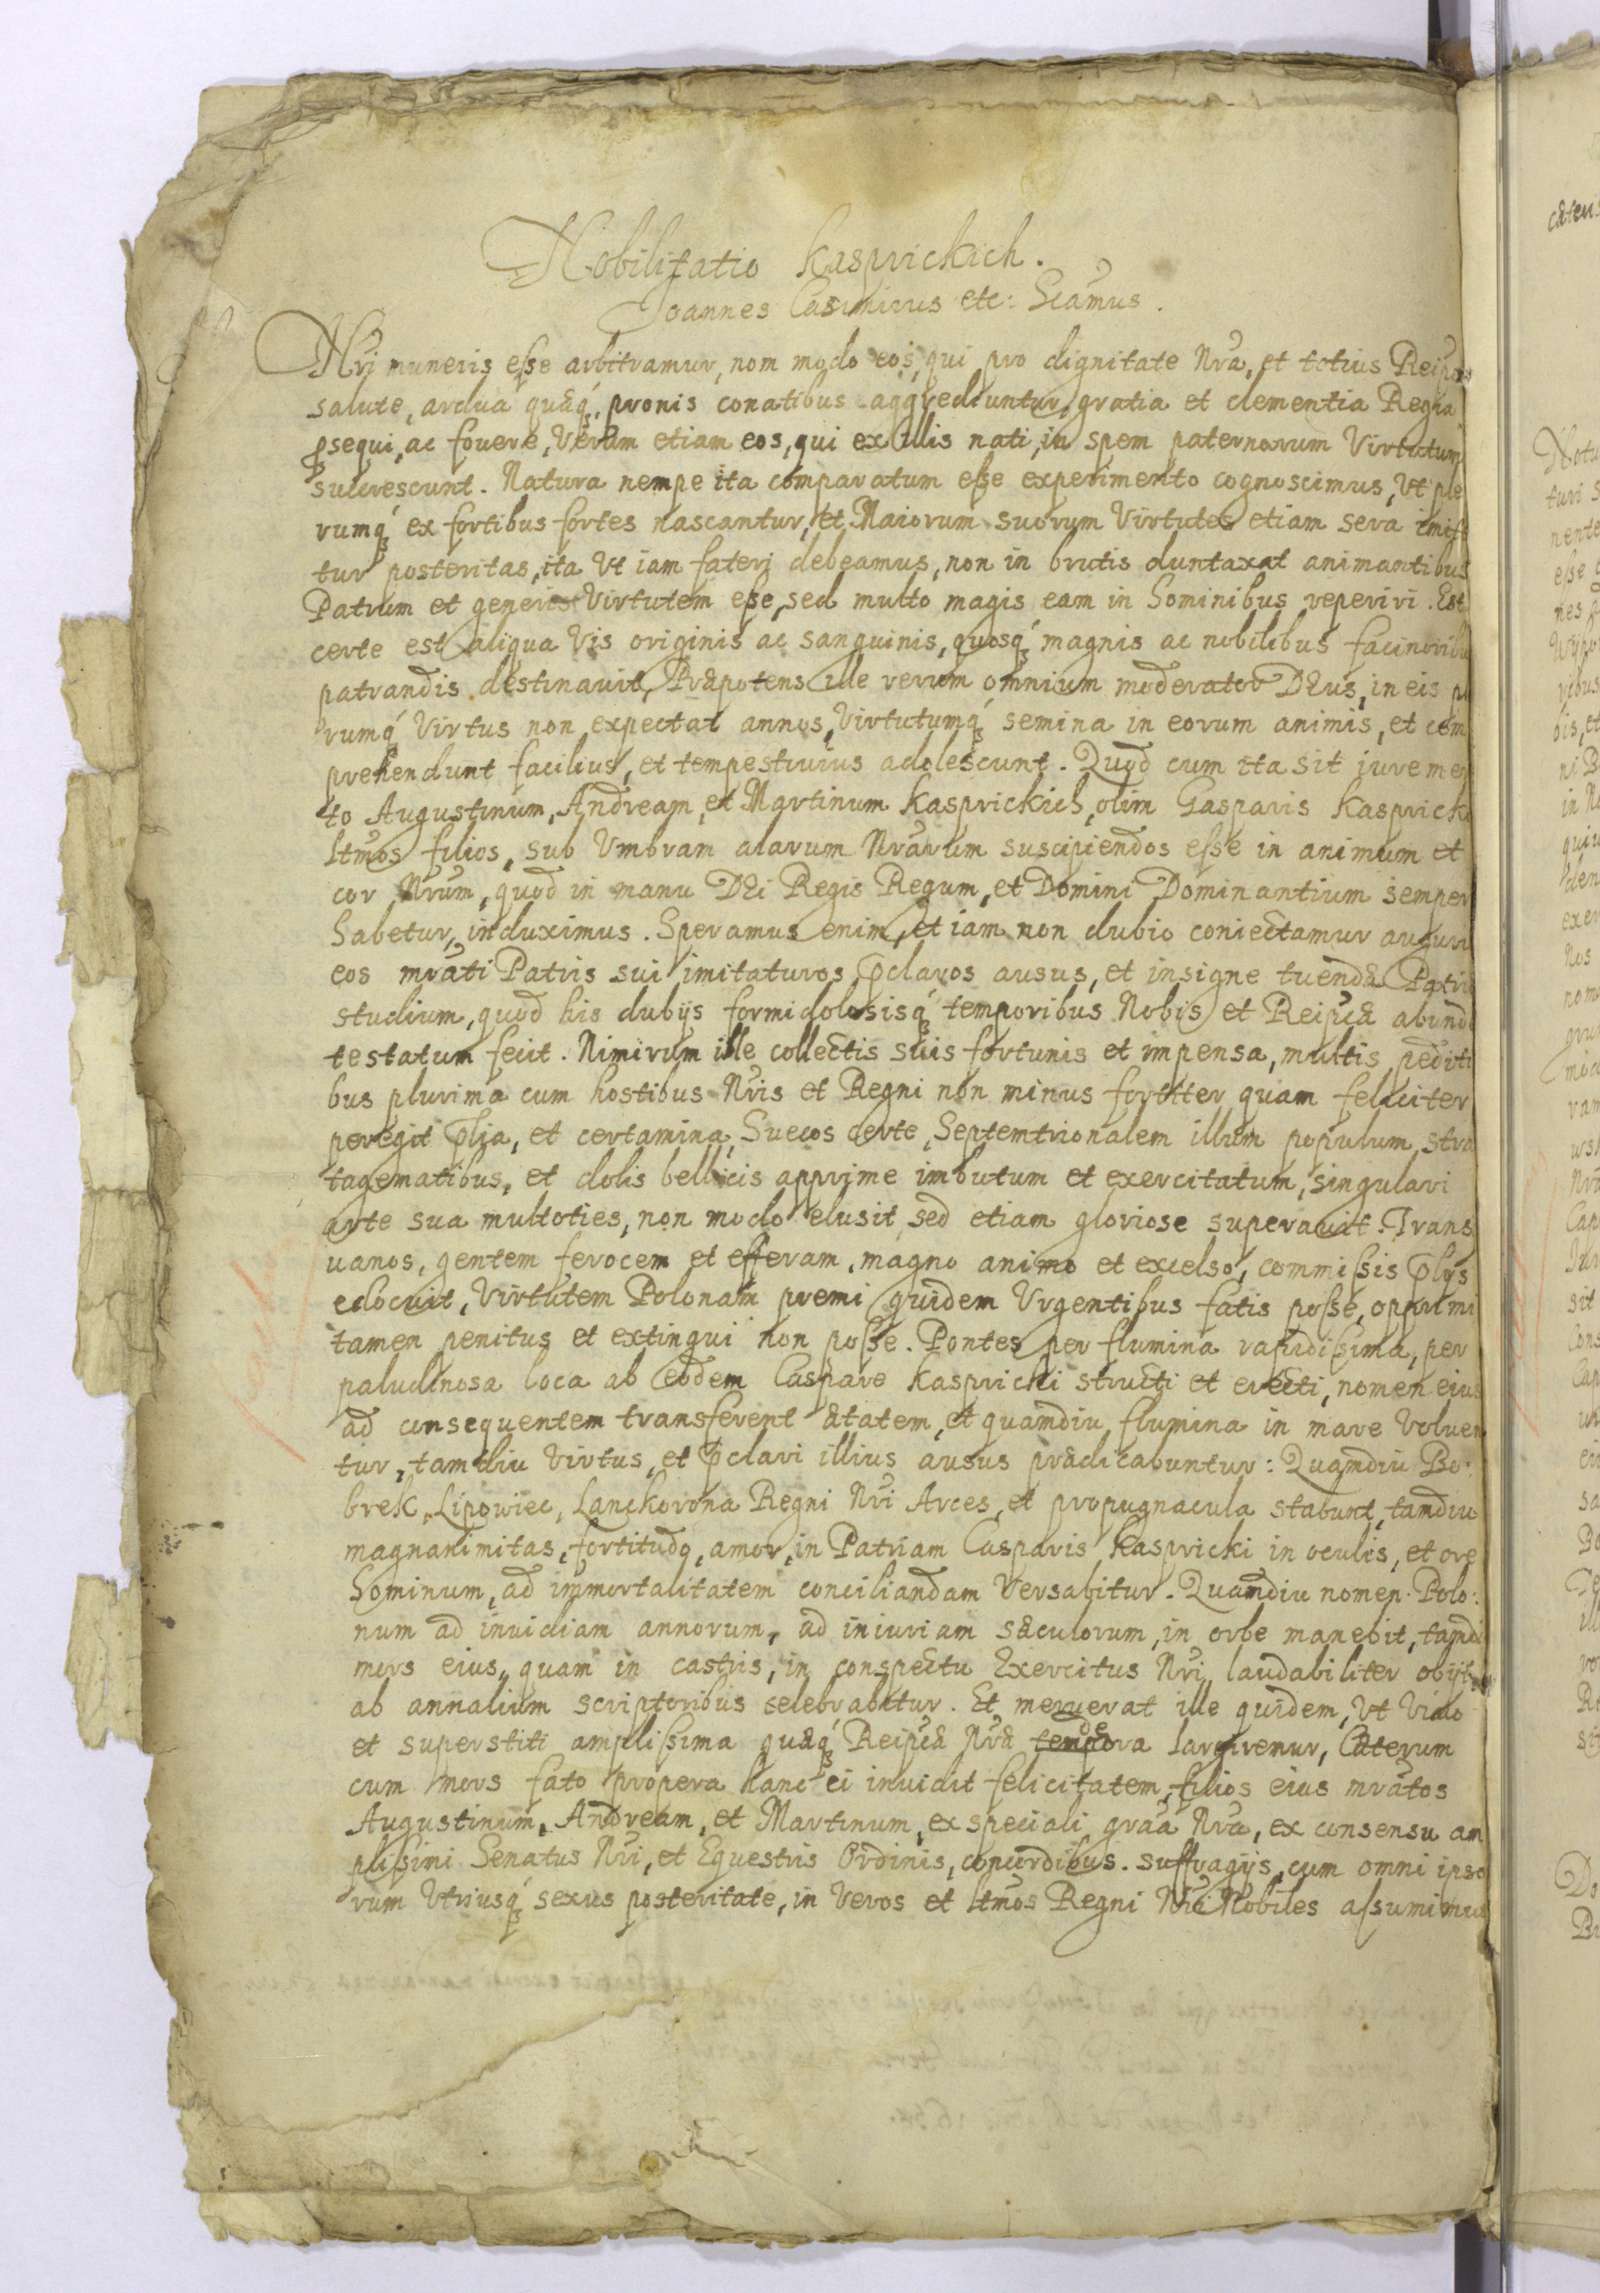 Nobilitatio Kasprickich.
Joannes Casimirus etc: Scamus.
Nri muneris esse arbitramur, nom modo eos, qui pro dignitate Nra, et totius Reipcae
salute, ardua quaeq, pronis conatibus aggrediuntur, gratia et clementia Regia
prosequi, ac fovere, Verum etiam eos, qui ex illis nati, in spem paternorum Virtutum
succrescunt. Natura nempe ita comparatum esse experimento cognoscimus, Vt ple
rumq ex fortibus fortes nascantur, et Maiorum suorum Virtutes etiam sera imite
tur posteritas, ita Vt iam fateri debeamus, non in brutis duntaxat animantibus
Patrum et generis Virtutem esse, sed multo magis eam in hominibus reperiri. Est
certe est aliqua Vis originis ac sanguinis, quosq magnis ac nobilibus facinoribus
patrandis destinavit, Praepotens ille rerum omnium moderator DEus, in eis ple
rumq Virtus non expectat annos, Virtutumq semina in eorum animis, et com
prehendunt facilius, et tempestivius adolescunt. Quod cum ita sit iure meri
to Augustinum, Andream, et Martinum Kasprickich, olim Gasparis Kaspricki
ltmos filios, sub Vmbram alarum Nrarum suscipiendos esse in animum et
cor Nrum, quod in manu DEi Regis Regum, et Domini Dominantium semper
habetur, induximus. Speramus enim, et iam non dubio coniectamur augurio
eos mrati Patris sui imitaturos pclaros ausus, et insigne tuendae Patriae
studium, quod his dubijs formidolosisq temporibus Nobis et Reipcae abunde
testatum fecit. Nimirum ille collectis suis fortunis et impensa, multis pediti
bus plurima cum hostibus Nris et Regni non minus fortiter quam feliciter
peregit plia, et certamina, Suecos certe, Septemtrionalem illum populum, stra
tagematibus, et dolis bellicis apprime imbutum et exercitatum, singulari
arte sua multoties, non modo elusit, sed etiam gloriose superavit. Trans
uanos, gentem ferocem et efferam, magno animo et excelso, commissis plijs
edocuit, Virtutem Polonam premi quidem Vrgentibus fatis posse, opprimi
tamen penitus et extingui non posse. Pontes per flumina rapidissima, per
paludinosa loca ab eodem Caspare Kaspricki structi et erecti, nomen eius
ad consequentem transferent aetatem, et quamdiu flumina in mare Voluen
tur, tamdiu Virtus, et pclari illius ausus praedicabuntur: Quamdiu Bo:
brek, Lipowiec, Lanckorona Regni Nri Arces, et propugnacula stabunt, tamdiu
magnanimitas, fortitudo, amor, in Patriam Casparis Kaspricki in oculis, et ore
hominum, ad immortalitatem conciliandam Versabitur. Quamdiu nomen Polo:
num ad invidiam annorum, ad iniuriam saeculorum, in orbe manebit, tamdi
mors eius, quam in castris, in conspectu Exercitus Nri laudabiliter obijt,
ab annalium scriptoribus celebrabitur. Et meruerat ille quidem, Vt Viuo
et superstiti amplissima quaeq Reipcae Nrae decora largiremur, Caeterum
cum mors fato propera hanc ei invidit felicitatem, filios eius mratos
Augustinum, Andream, et Martinum, ex speciali graa Nra, ex consensu am
plissimi Senatus Nri, et Equestris Ordinis, concordibus suffragijs, cum omni ipso
rum Vtriusq sexus posteritate, in Veros et ltmos Regni Nri Nobiles assumimus